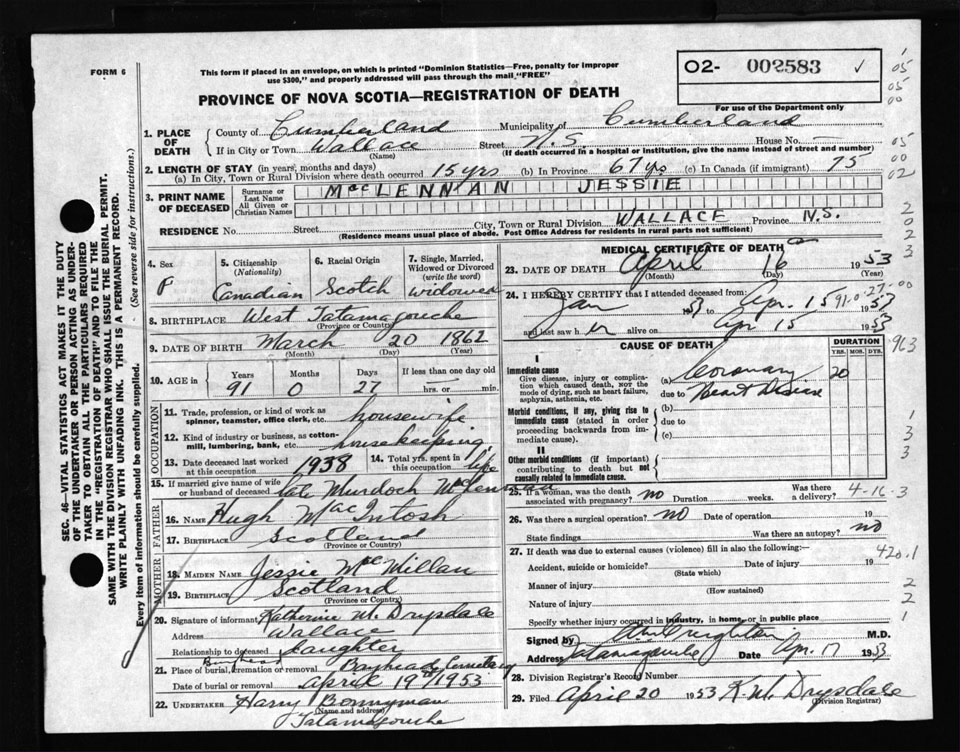 FORM 6
This form if placed in an envelope, on which is printed "Dominion Statistics—Free, penalty for improper
use $300," and properly addressed will pass through the mail "FREE"
O2- 002583 ✓
For use of the Department only
PROVINCE OF NOVA SCOTIA—REGISTRATION OF DEATH
1. PLACE OF DEATH
County of Cumberland Municipality of Cumberland
If in City or Town Wallace Street N.S. House No. —
(Name) (If death occurred in a hospital or institution, give the name instead of street and number)
2. LENGTH OF STAY (in years, months and days)
(a) In City, Town or Rural Division where death occurred 15 yrs (b) In Province 67 yrs (c) In Canada (if immigrant) 75
3. PRINT NAME OF DECEASED
Surname or Last Name MacLENNAN JESSIE
All Given or Christian Names
RESIDENCE No. Street City, Town or Rural Division WALLACE Province N.S.
(Residence means usual place of abode. Post Office Address for residents in rural parts not sufficient)
4. Sex F
5. Citizenship (Nationality) Canadian
6. Racial Origin Scotch
7. Single, Married, Widowed or Divorced (write the word) widowed
8. BIRTHPLACE West Tatamagouche
(Province or Country)
9. DATE OF BIRTH March 20 1862
(Month) (Day) (Year)
10. AGE in Years 91 Months 0 Days 27 If less than one day old hrs. or min.
OCCUPATION
11. Trade, profession, or kind of work as spinner, teamster, office clerk, etc. housewife
12. Kind of industry or business, as cotton-mill, lumbering, bank, etc. housekeeping
13. Date deceased last worked at this occupation 1938
14. Total yrs. spent in this occupation life
15. If married give name of wife or husband of deceased late Murdoch McLennan
FATHER
16. NAME Hugh MacIntosh
17. BIRTHPLACE Scotland
(Province or Country)
MOTHER
18. MAIDEN NAME Jessie McMillan
19. BIRTHPLACE Scotland
(Province or Country)
20. Signature of informant Katherine W. Drysdale
Address Wallace
Relationship to deceased Daughter
21. Place of burial, cremation or removal Bayhead Cemetery
Date of burial or removal April 19th 1953
22. UNDERTAKER Harry Bonnyman
(Name and address)
Tatamagouche
MEDICAL CERTIFICATE OF DEATH
23. DATE OF DEATH April 16 1953
(Month) (Day) (Year)
24. I HEREBY CERTIFY that I attended deceased from:
Jan 1953 to Apr. 15 1953
and last saw her alive on Apr 15 1953
91-0-27-00
CAUSE OF DEATH
DURATION
YRS. MOS. DYS.
I
Immediate cause
Give disease, injury or complication which caused death, not the mode of dying, such as heart failure, asphyxia, asthenia, etc.
(a) Coronary 20
due to Heart Disease
Morbid conditions, if any, giving rise to immediate cause (stated in order proceeding backwards from immediate cause).
(b)
due to
(c)
II
Other morbid conditions (if important) contributing to death but not causally related to immediate cause.
25. If a woman, was the death associated with pregnancy? no Duration weeks. Was there a delivery? 4-16-3
26. Was there a surgical operation? no Date of operation 19
State findings Was there an autopsy? no
27. If death was due to external causes (violence) fill in also the following:—
420.1
Accident, suicide or homicide? Date of injury 19
(State which)
Manner of injury
(How sustained)
Nature of injury
Specify whether injury occurred in industry, in home, or in public place
Signed by Creighton M.D.
Address Tatamagouche Date Apr. 17 1953
28. Division Registrar's Record Number
29. Filed April 20 1953 K. W. Drysdale
(Division Registrar)
SEC. 46—VITAL STATISTICS ACT MAKES IT THE DUTY
OF THE UNDERTAKER OR PERSON ACTING AS UNDER-
TAKER TO OBTAIN ALL THE PARTICULARS REQUIRED
IN THE "REGISTRATION OF DEATH" AND TO FILE THE
SAME WITH THE DIVISION REGISTRAR WHO SHALL ISSUE THE BURIAL PERMIT.
WRITE PLAINLY WITH UNFADING INK. THIS IS A PERMANENT RECORD.
Every item of information should be carefully supplied. (See reverse side for instructions.)
05
05
00
05
00
02
2
0
2
3
963
1
3
3
2
2
1